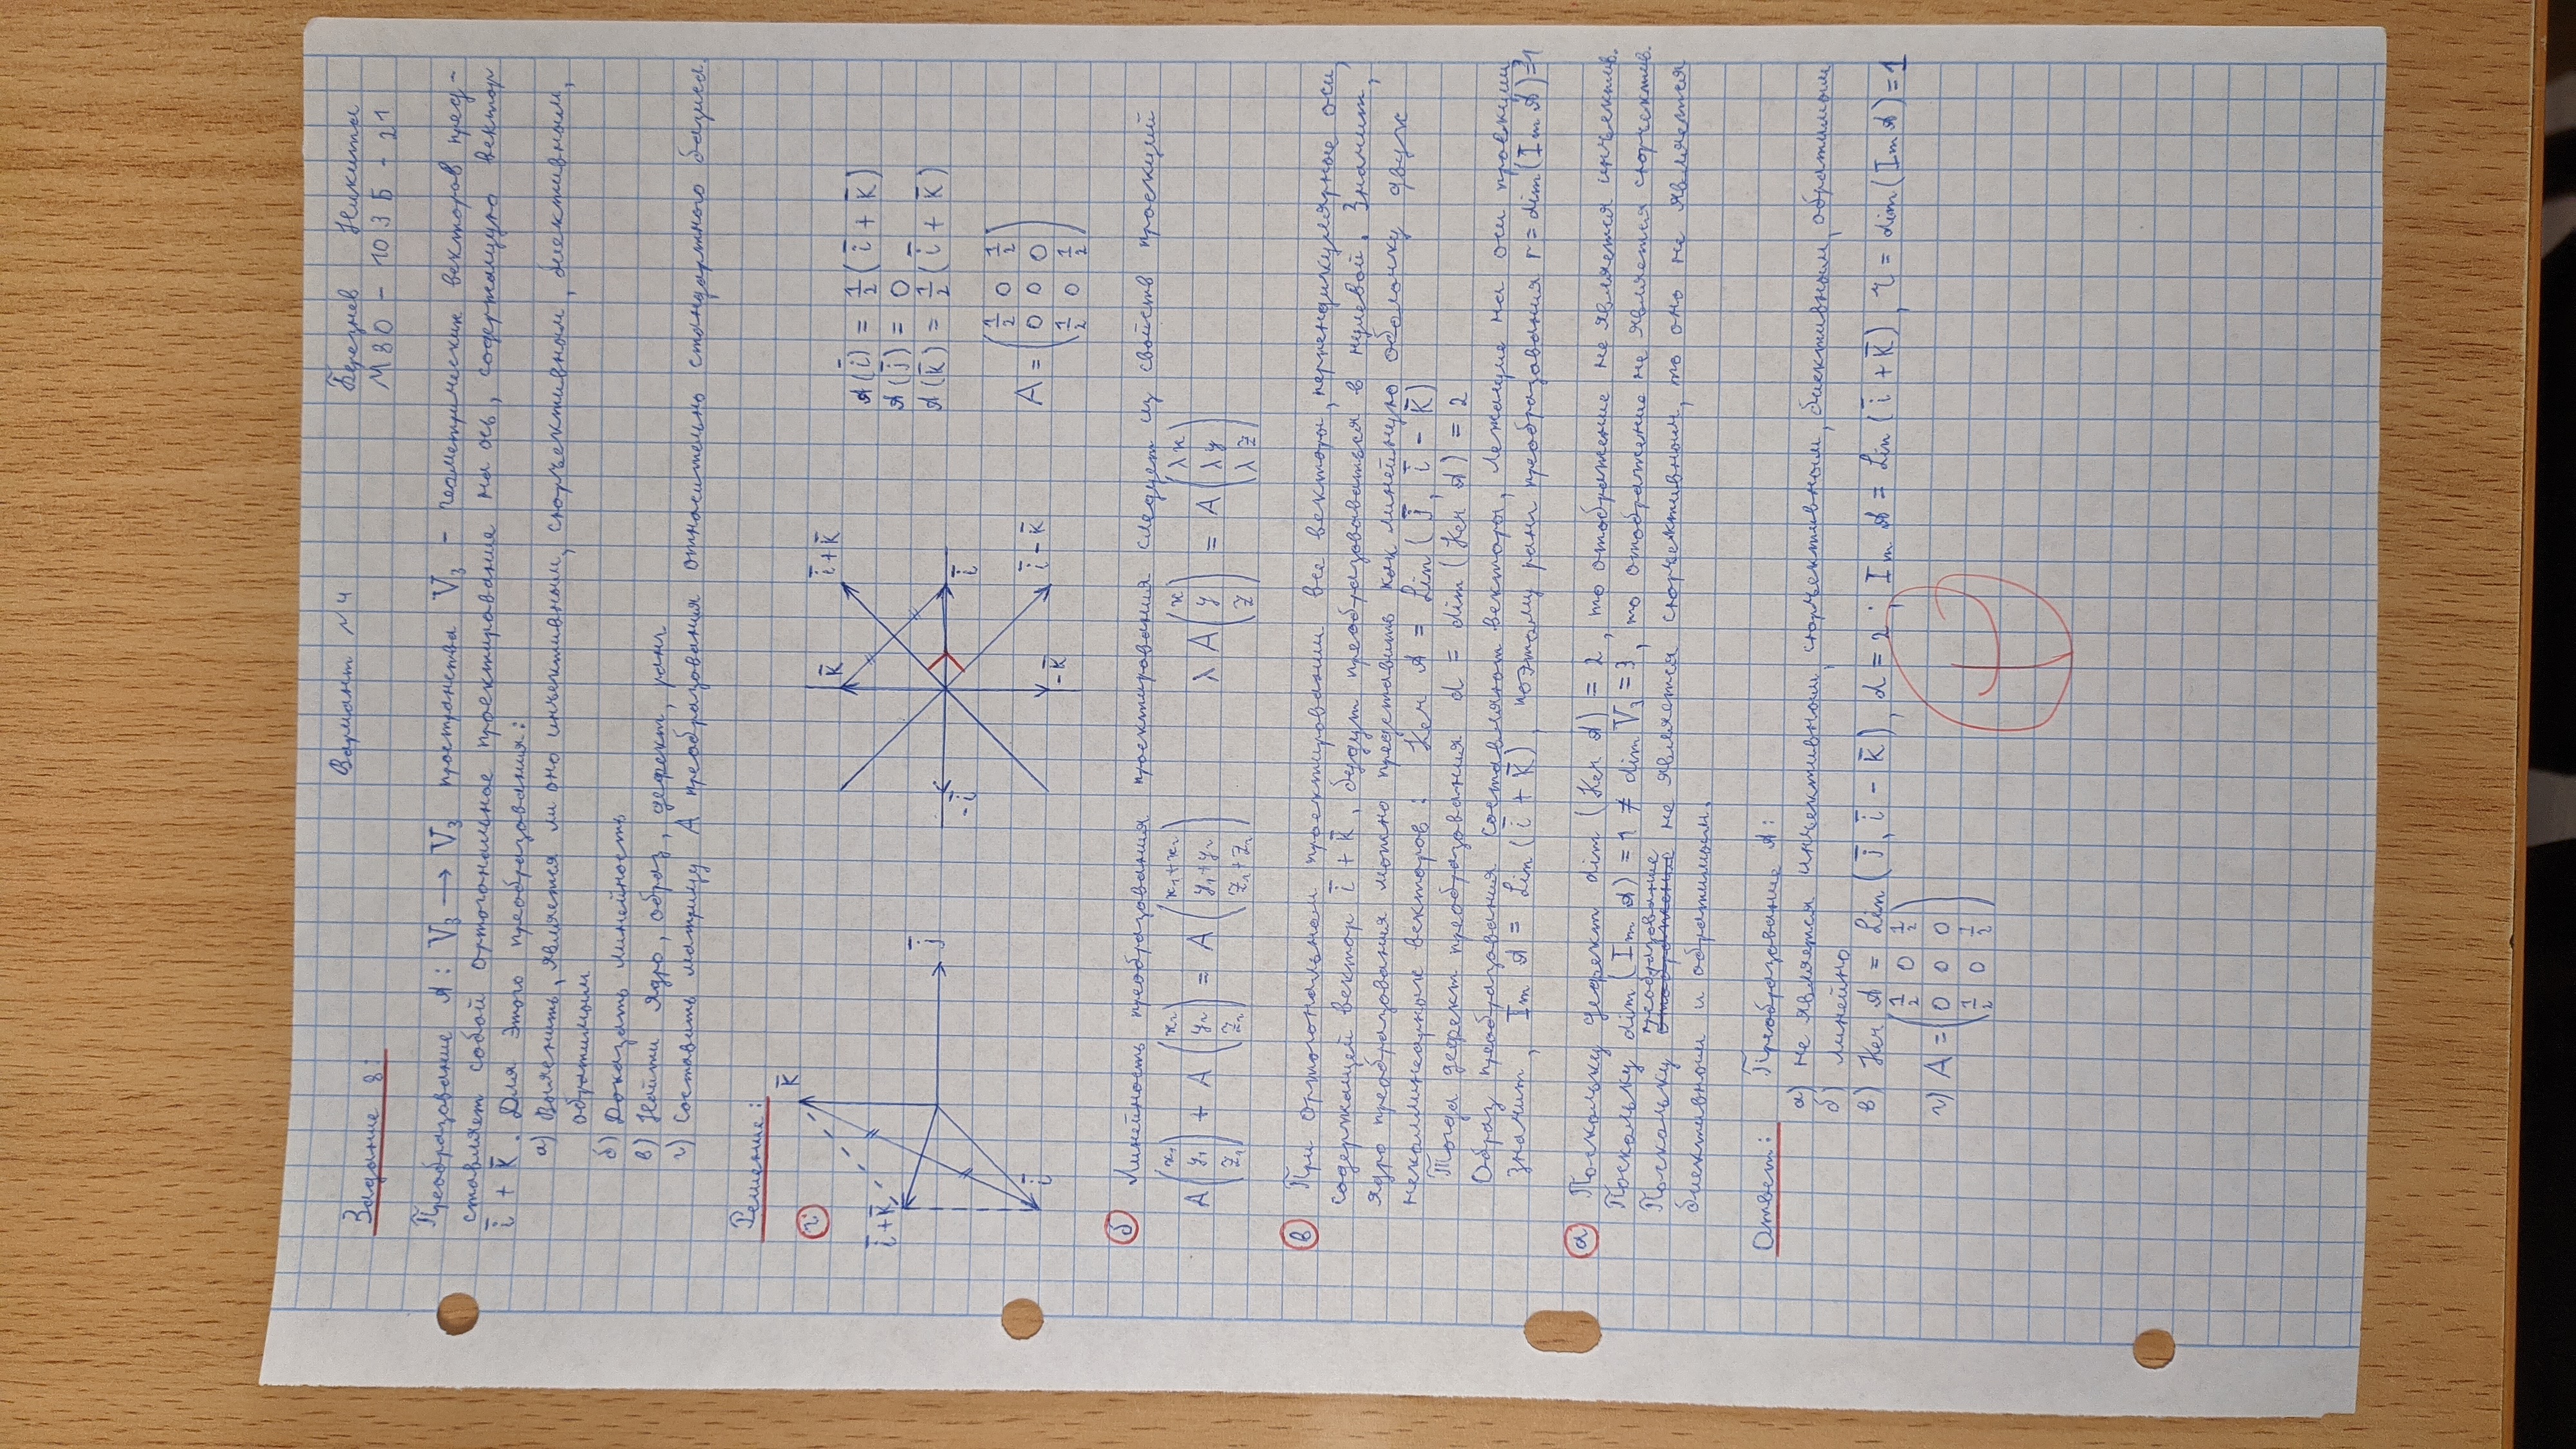 Вариант №4
Березнев Никита
Задание 8:
М8О - 103Б - 21
Преобразование A: V₃ → V₃ пространства V₃ - геометрических векторов пред-
ставляет собой ортогональное проектирование на ось, содержащую вектор
i̅ + k̅. Для этого преобразования:
а) Выяснить, является ли оно инъективным, сюръективным, биективным,
обратимым
б) Доказать линейность
в) Найти ядро, образ, дефект, ранг
г) Составить матрицу A преобразования относительно стандартного базиса.
Решение:
г
k̅
i̅+k̅
j̅
i̅
k̅
i̅+k̅
-i̅
i̅
-k̅
i̅-k̅
A(i̅) = 1/2 (i̅ + k̅)
A(j̅) = 0
A(k̅) = 1/2 (i̅ + k̅)
A = (1/2 0 1/2
0 0 0
1/2 0 1/2)
б Линейность преобразования проектирования следует из свойств проекций
A (x₁ y₁ z₁) + A (x₂ y₂ z₂) = A (x₁+x₂ y₁+y₂ z₁+z₂) λ A (x y z) = A (λx λy λz)
в При ортогональном проектировании все векторы, перпендикулярные оси,
содержащей вектор i̅ + k̅, будут преобразовываться в нулевой. Значит,
ядро преобразования можно представить как линейную оболочку двух
неколлинеарных векторов: Ker A = Lin (j̅, i̅ - k̅)
Тогда дефект преобразования d = dim (Ker A) = 2
Образ преобразования составляют векторы, лежащие на оси проекции
Значит, Im A = Lin (i̅ + k̅), поэтому ранг преобразования r = dim (Im A) = 1
а Поскольку дефект dim (Ker A) = 2, то отображение не является инъектив.
Поскольку dim (Im A) = 1 ≠ dim V₃ = 3, то отображение не является сюръектив.
Поскольку преобразование не является сюръективным, то оно не является
биективным и обратимым.
Ответ: Преобразование A:
а) не является инъективным, сюръективным, биективным, обратимым
б) линейно
в) Ker A = Lin (j̅, i̅ - k̅), d = 2; Im A = Lin (i̅ + k̅), r = dim (Im A) = 1
г) A = (1/2 0 1/2
0 0 0
1/2 0 1/2)
+